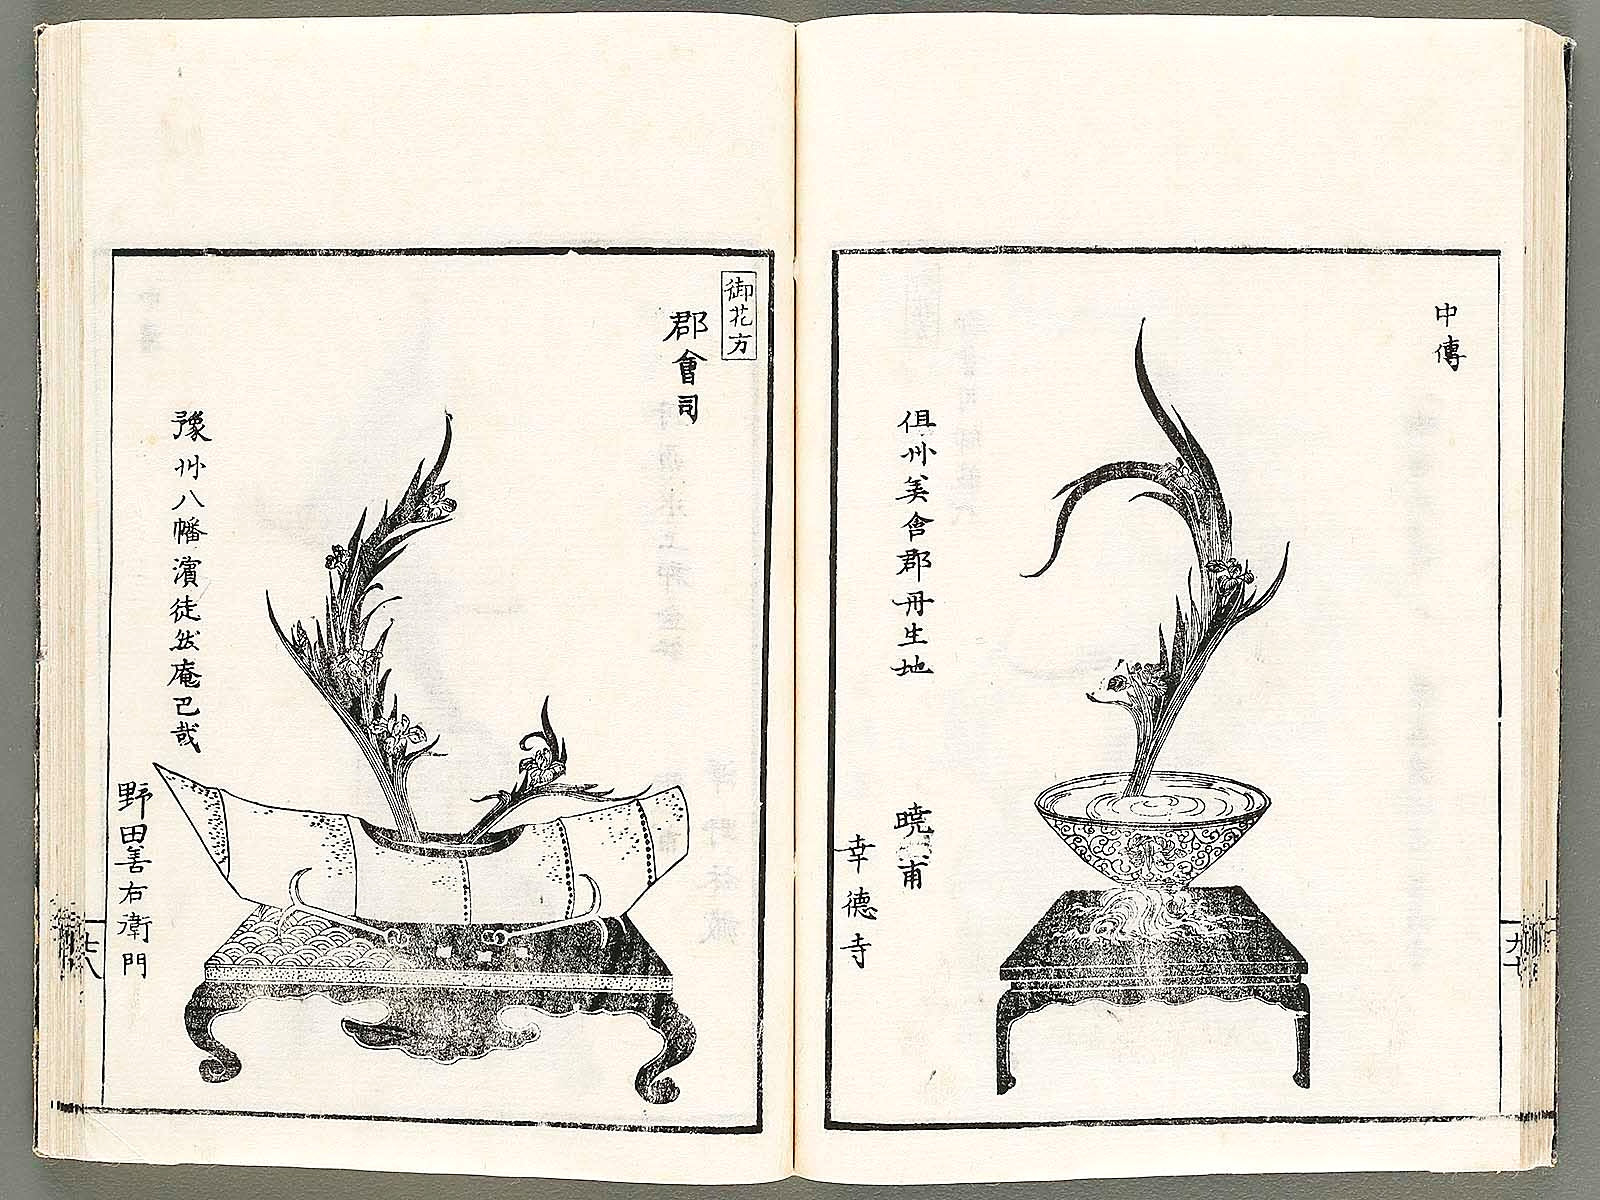 中傳
但州美含郡丹生地
暁甫
幸德寺
御花方
郡會司
豫州八幡濱徒然庵巴哉
野田善右衛門
七八